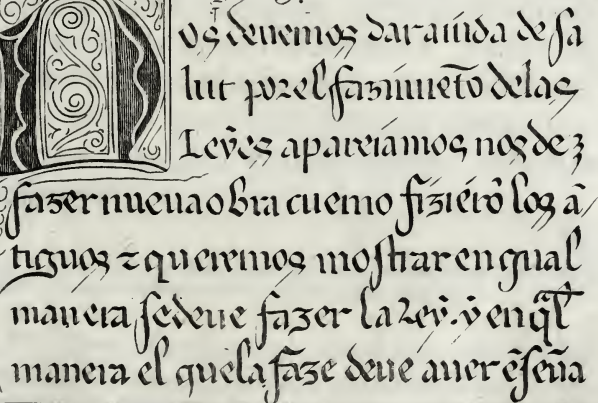 Nos deuemos dar aiuda de sa
lut por el fazimiẽto delas
Leyes apareiamos nos de
fazer nueua obra cuemo fiziẽrõ los ã
tiguos ⁊ queremos mostrar en qual
manera se deue fazer la Ley. y en q̃l
manera el que la faze deue auer ẽseña